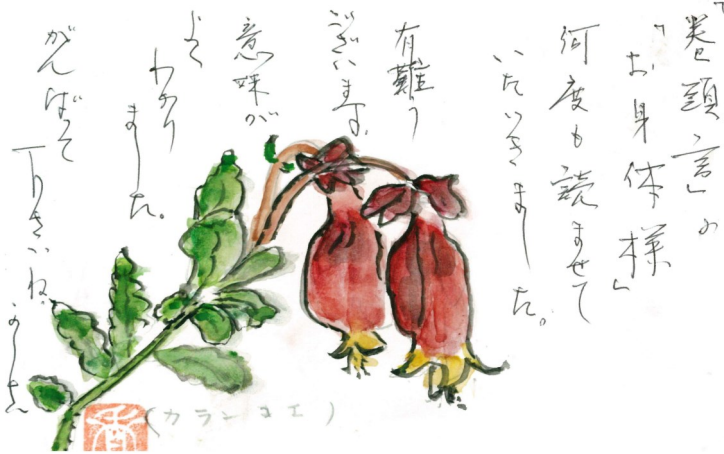 「巻頭言」の
「お身体様」
何度も読ませて
いただきました。
有難う
ございます。
意味が
よく
わかり
ました。
がんばって
下さいね。
(カランコエ)
香